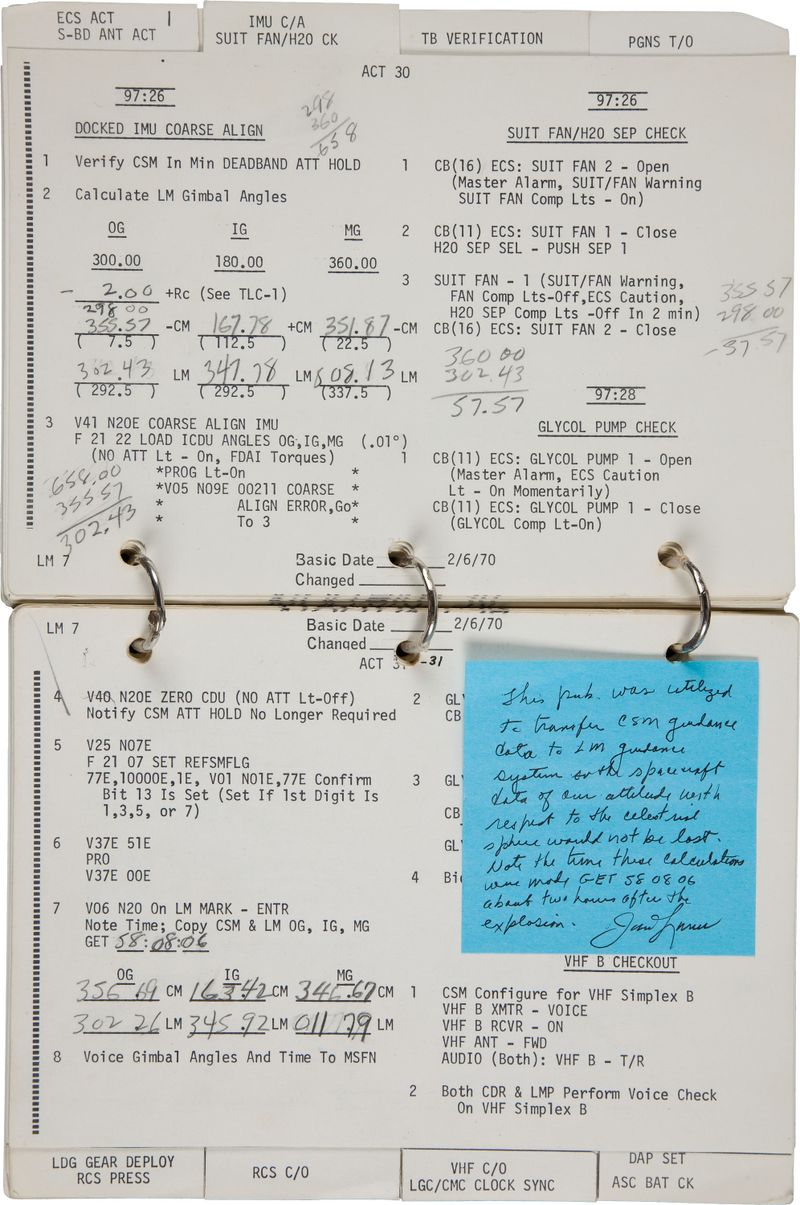 ECS ACT
S-BD ANT ACT
IMU C/A
SUIT FAN/H2O CK
TB VERIFICATION
PGNS T/O
ACT 30
97:26
DOCKED IMU COARSE ALIGN
298
360
658
1 Verify CSM In Min DEADBAND ATT HOLD
2 Calculate LM Gimbal Angles
OG IG MG
300.00 180.00 360.00
- 2.00 +Rc (See TLC-1)
298 00
355.57 -CM 167.78 +CM 351.87 -CM
( 7.5 ) (112.5 ) ( 22.5 )
302.43 LM 347.78 LM 008.13 LM
(292.5 ) (292.5 ) (337.5 )
3 V41 N20E COARSE ALIGN IMU
F 21 22 LOAD ICDU ANGLES OG,IG,MG (.01°)
(NO ATT Lt - On, FDAI Torques)
*PROG Lt-On *
*V05 N09E 00211 COARSE *
* ALIGN ERROR,Go*
* To 3 *
658.00
355 57
302.43
97:26
SUIT FAN/H2O SEP CHECK
1 CB(16) ECS: SUIT FAN 2 - Open
(Master Alarm, SUIT/FAN Warning
SUIT FAN Comp Lts - On)
2 CB(11) ECS: SUIT FAN 1 - Close
H2O SEP SEL - PUSH SEP 1
3 SUIT FAN - 1 (SUIT/FAN Warning,
FAN Comp Lts-Off,ECS Caution,
H2O SEP Comp Lts -Off In 2 min)
CB(16) ECS: SUIT FAN 2 - Close
355 57
298.00
-57.57
360 00
302.43
57.57
97:28
GLYCOL PUMP CHECK
1 CB(11) ECS: GLYCOL PUMP 1 - Open
(Master Alarm, ECS Caution
Lt - On Momentarily)
CB(11) ECS: GLYCOL PUMP 1 - Close
(GLYCOL Comp Lt-On)
LM 7
Basic Date 2/6/70
Changed
LM 7
Basic Date 2/6/70
Changed
ACT 31 -31
4 V40 N20E ZERO CDU (NO ATT Lt-Off)
Notify CSM ATT HOLD No Longer Required
5 V25 N07E
F 21 07 SET REFSMFLG
77E,10000E,1E, V01 N01E,77E Confirm
Bit 13 Is Set (Set If 1st Digit Is
1,3,5, or 7)
6 V37E 51E
PRO
V37E 00E
7 V06 N20 On LM MARK - ENTR
Note Time; Copy CSM & LM OG, IG, MG
GET 58:08:06
OG IG MG
356 69 CM 163 42 CM 346.67 CM
302 26 LM 345 92 LM 011 79 LM
8 Voice Gimbal Angles And Time To MSFN
2 GL
CB
3 GL
CB
GL
4
This pub. was utilized
to transfer CSM guidance
data to LM guidance
system so the spacecraft
data of our attitude with
respect to the celestrial
sphere would not be lost.
Note the time these calculations
were made GET 58 08 06
about two hours after the
explosion. James Lovell
VHF B CHECKOUT
1 CSM Configure for VHF Simplex B
VHF B XMTR - VOICE
VHF B RCVR - ON
VHF ANT - FWD
AUDIO (Both): VHF B - T/R
2 Both CDR & LMP Perform Voice Check
On VHF Simplex B
LDG GEAR DEPLOY
RCS PRESS
RCS C/O
VHF C/O
LGC/CMC CLOCK SYNC
DAP SET
ASC BAT CK